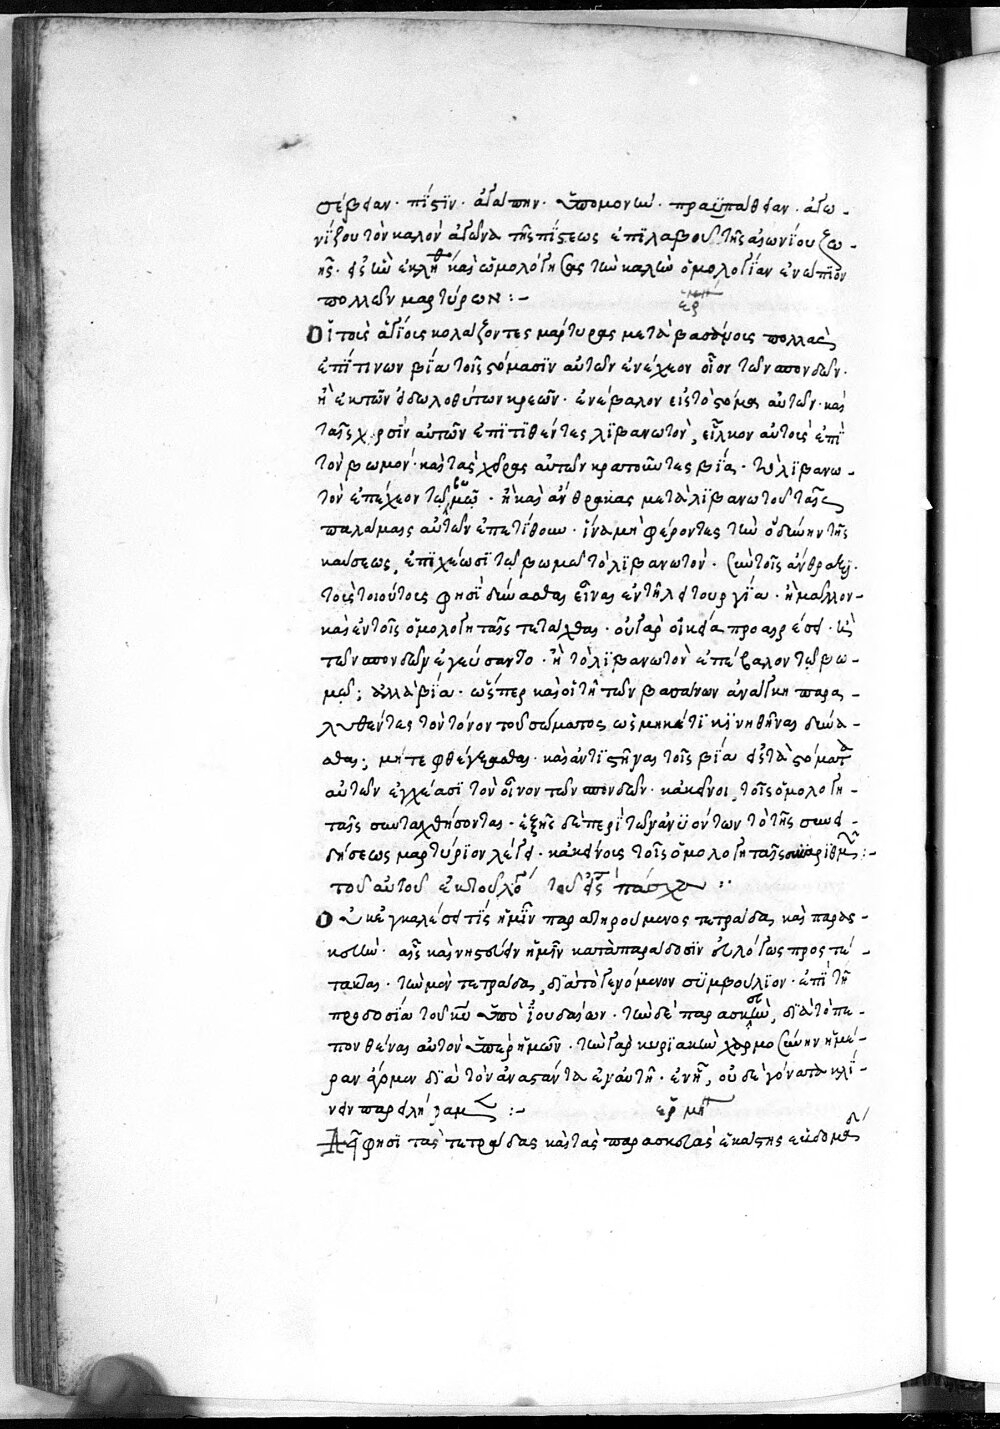 σέβειαν· πίστϊν· ἀγάπην· ὑπομονὴν· πραϋπάθειαν· ἀγω-
νίζου τὸν καλὸν ἀγῶνα τῆς πίστεως ἐπϊλαβοῦ τῆς αἰωνίου ζω-
ῆς· εἰς ἣν ἐκλήθης καὶ ὡμολόγησας τὴν καλὴν ὁμολογίαν ἐνώπϊον
πολλῶν μαρτύρων :-
ἑρμη
Οἱ τοὺς ἁγίους κολάζοντες μάρτυρας μετὰ βασάνους πολλὰς
ἐπί τινων βία τοῖς στόμασϊν αὐτῶν ἐνέχεον οἶον τῶν σπονδῶν·
ἢ ἐκ τῶν εἰδωλοθύτων κρεῶν· ἐνέβαλον εἰς τὸ στόμα αὐτῶν· καὶ
ταῖς χερσὶν αὐτῶν ἐπϊτϊθέντες λϊβανωτὸν, εἷλκον αὐτοὺς ἐπὶ
τὸν βωμόν· καὶ τὰς χεῖρας αὐτῶν κρατοῦντες βίᾳ· τὸ λϊβανω-
τὸν ἐπέχεον τῷ βωμῷ· ἢ καὶ ἄνθρακας μετὰ λϊβανωτοῦ ταῖς
παλάμαις αὐτῶν ἐπετίθουν· ἵνα μὴ φέροντες τὴν ὀδύνην τῆς
καύσεως, ἐπϊχέωσϊ τῷ βωμῷ τὸ λϊβανωτὸν· σὺν τοῖς ἄνθραξϊ·
τοὺς τοιούτους φησὶ δύνασθαι εἶναι ἐν τῇ λειτουργία· ἢ μᾶλλον-
καὶ ἐν τοῖς ὁμολογηταῖς τετάχθαι· οὐ γὰρ οἰκεία προαιρέσει· ἢ
τῶν σπονδῶν ἐγεύσαντο· ἢ τὸ λϊβανωτὸν ἐπέβαλον τῷ βω-
μῷ; ἀλλὰ βία· ὥσπερ καὶ οἱ τῇ τῶν βασάνων ἀνάγκη παρα-
λυθέντες τὸν τόνον τοῦ σώματος ὡς μηκέτϊ κϊνηθῆναι δύνα-
σθαι; μήτε φθέγξασθαι· καὶ ἀντϊστῆναι τοῖς βία εἰς τὰ στόματα
αὐτῶν ἐγχέασϊ τὸν οἶνον τῶν σπονδῶν· κἀκεῖνοι, τοῖς ὁμολογη-
ταῖς συνταχθήσονται· ἑξῆς δὲ περὶ τῶν ἀνϋόντων τὸ τῆς συνει-
δήσεως μαρτύριον λέγει· κἀκείνους τοῖς ὁμολογηταῖς συναριθμεῖ :-
τοῦ αὐτοῦ ἐκ τοῦ λόγου τοῦ εἰς τὸ πάσχα :·
Οὐκ ἐγκαλέσει τϊς ἡμῖν παρατηρούμενος τετράδα καὶ παρασ-
κευὴν· αἷς καὶ νηστεύειν ἡμῖν κατὰ παράδοσϊν εὐλόγως προστέ-
τακται· τὴν μὲν τετράδα, δϊὰ τὸ γενόμενον συμβούλϊον· ἐπὶ τῆ
προδοσία τοῦ κυ ὑπὸ ἰουδαίων· τὴν δὲ παρασκευὴν, δϊὰ τὸ πε-
πονθέναι αὐτὸν ὑπὲρ ἡμῶν· τὴν γὰρ κυρϊακὴν χαρμοσύνην ἡμέ-
ραν ἄγομεν δϊὰ τὸν ἀναστάντα ἐν αὐτῇ· ἐν ᾗ, οὐδὲ γόνατα κλί-
νειν παρειλήφαμεν :-
ἑρμη
Ἀεὶ φησϊ τὰς τετράδας καὶ τὰς παρασκευὰς ἑκάστης ἑβδομάδος